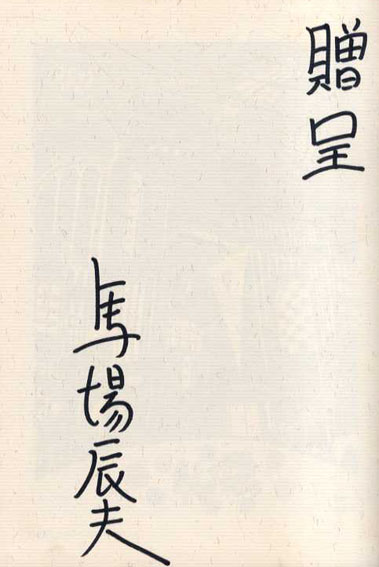 贈呈
馬場辰夫